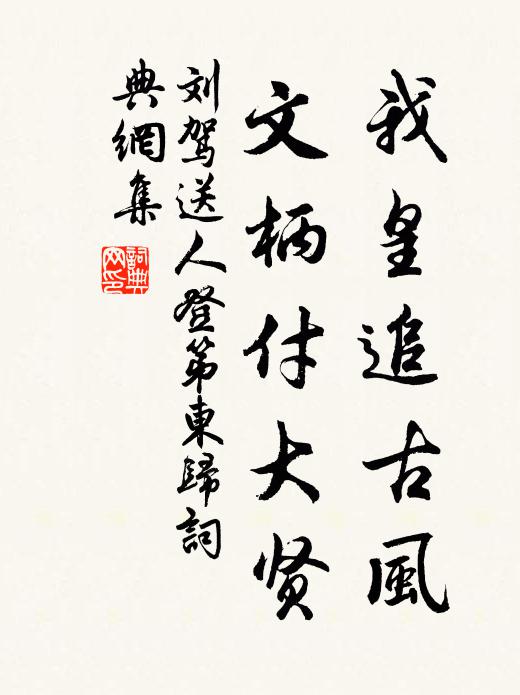 我皇追古風
文柄付大贤
刘驾送人登第東歸詞
典網集
詞典
网印